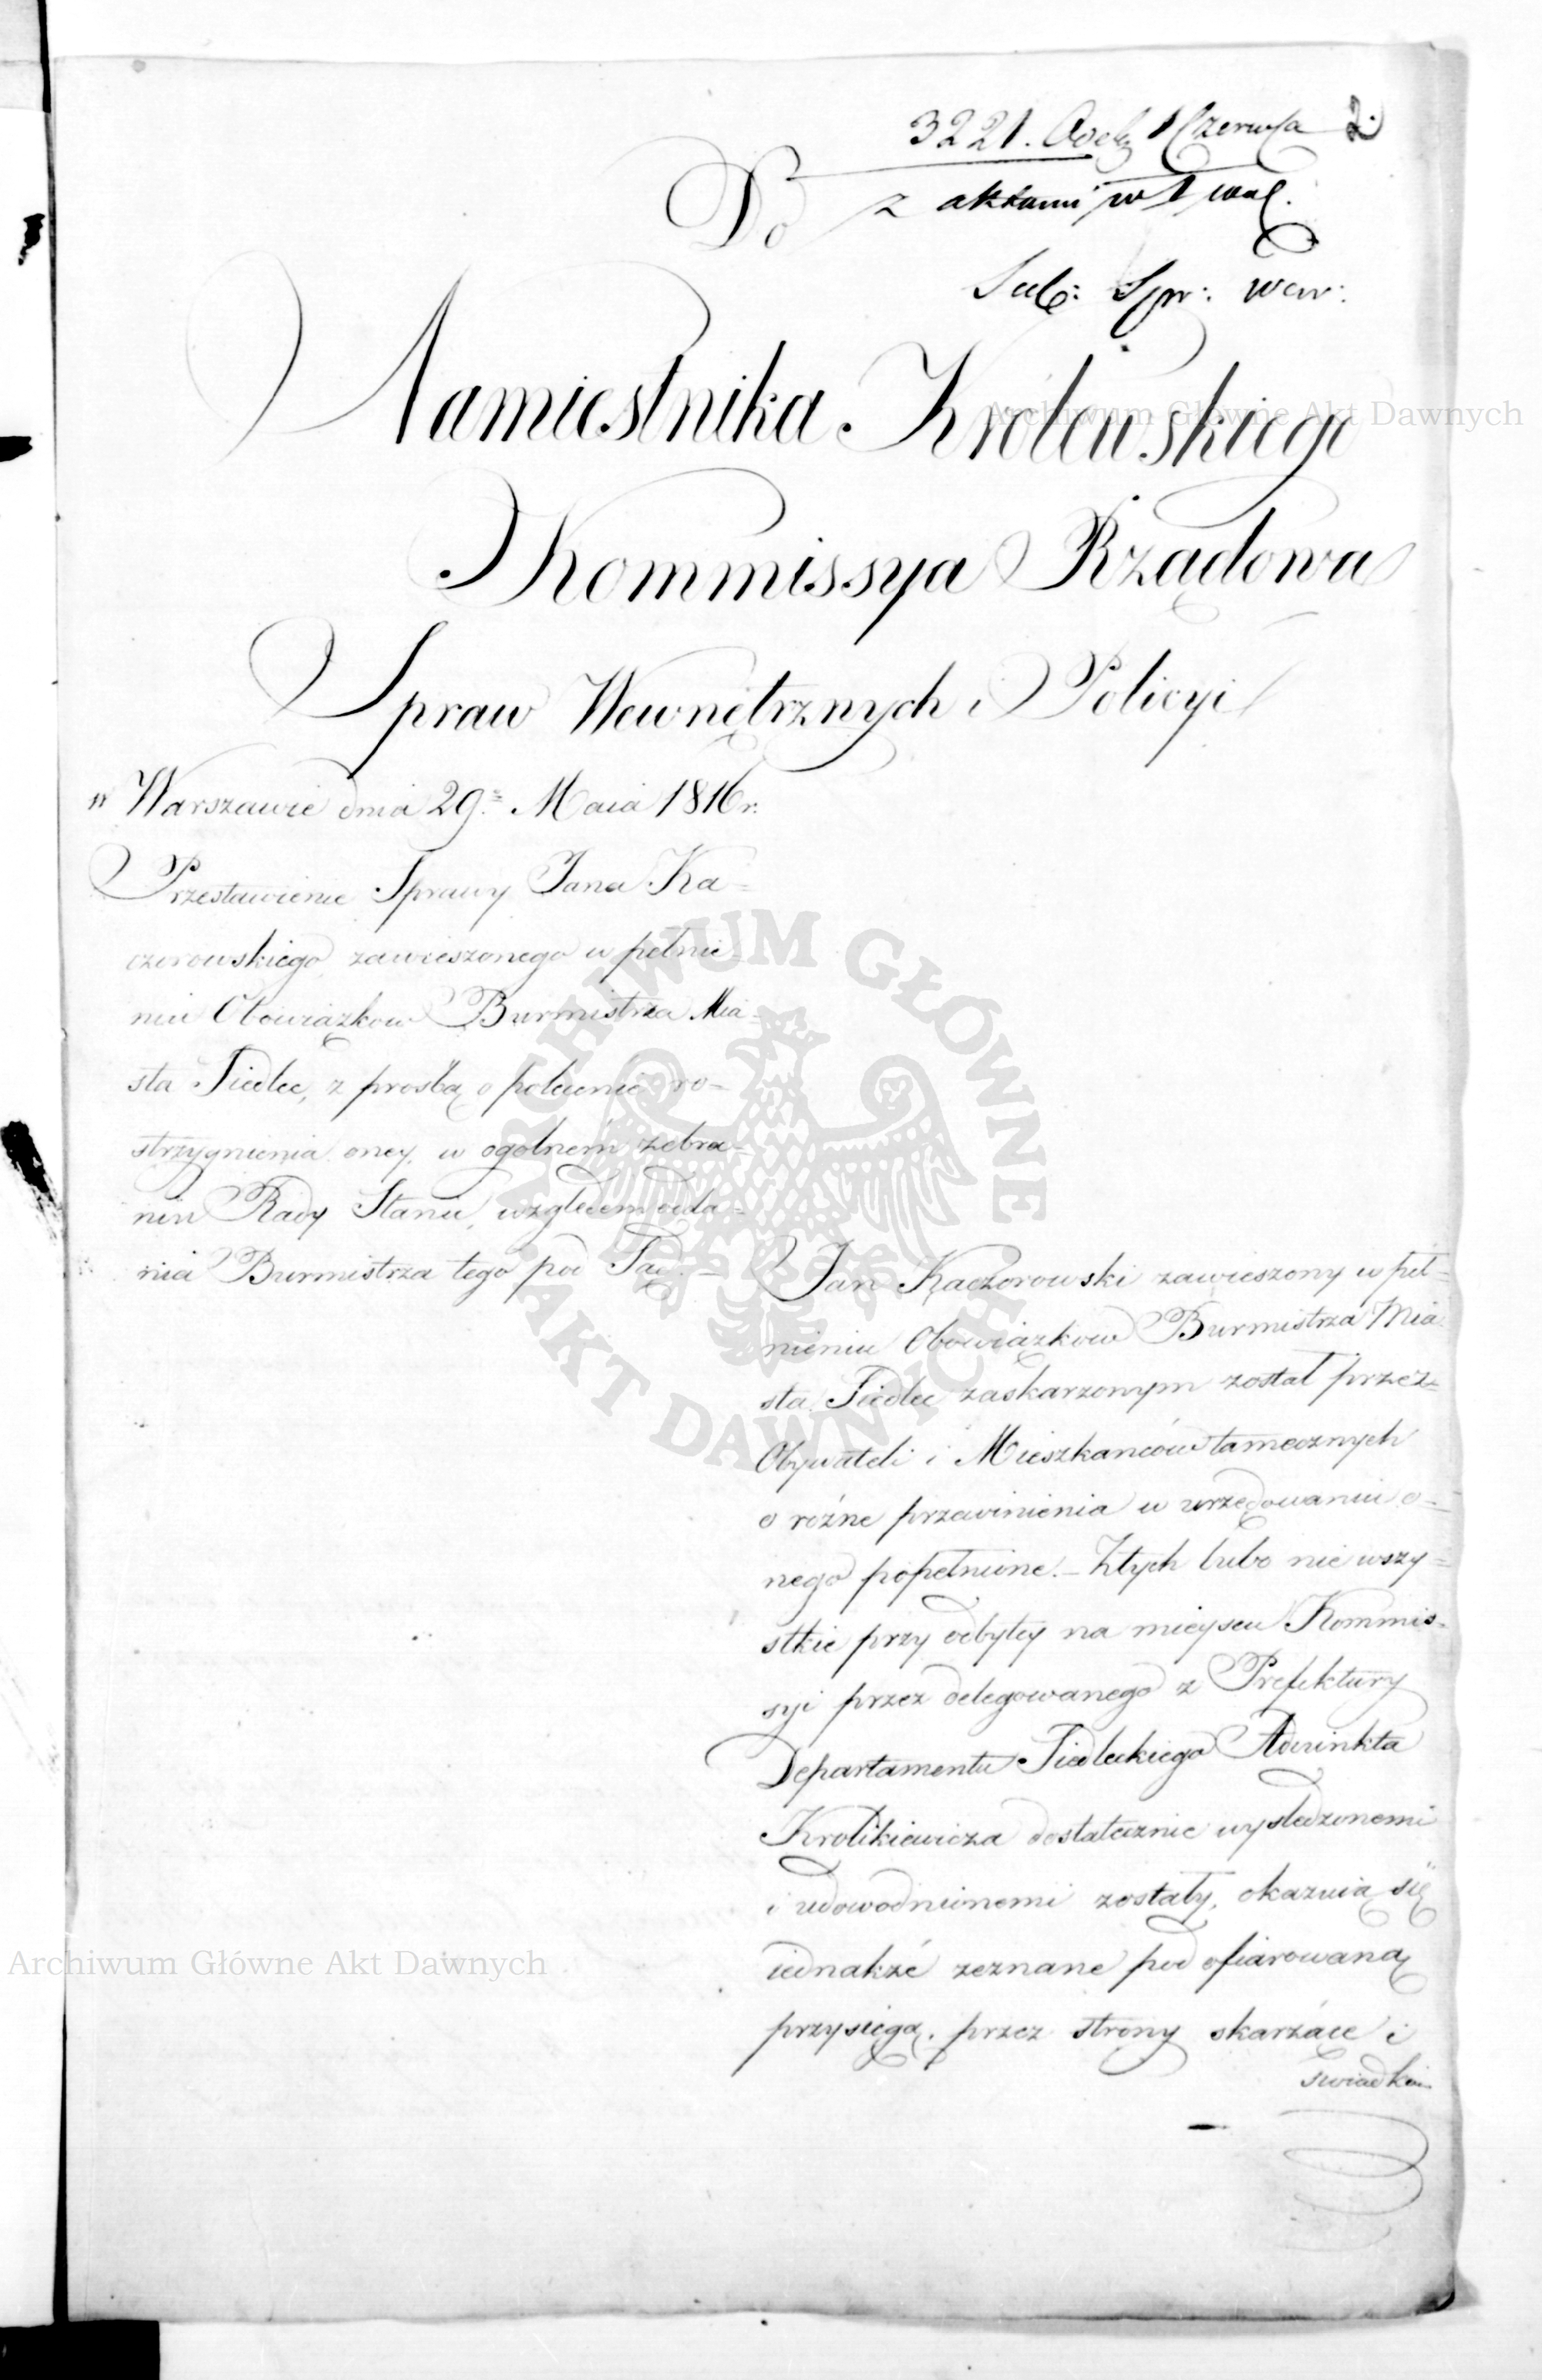 3221. Odeb. 1 Czerwca 2.
z aktami w 1 wol.
Sek: Spr: wew:
Do
Namiestnika Królewskiego
Kommissya Rządowa
Spraw Wewnętrznych i Policyi
w Warszawie dnia 29. Maia 1816 r.
Przestawienie Sprawy Jana Ka=
czorowskiego zawieszonego w pełnie=
niu Obowiązkow Burmistrza Mia=
sta Siedlec, z prosbą o polecenie ro=
strzygnienia oney, w ogolném zebra=
niu Rady Stanu, względem odda=
nia Burmistrza tego pod Sąd. –
Jan Kaczorowski zawieszony w peł=
nieniu Obowiązkow Burmistrza Mia=
sta Siedlec zaskarzonym został przez=
Obywateli i Mieszkanców tamecznych
o rożne przewinienia w urzędowaniu o=
nego popełnione. – Z tych lubo nie wszy=
stkie przy odbytey na mieyscu Kommis=
syi przez delegowanego z Prefektury
Departamentu Siedleckiego Adiunkta
Krolikiewicza dostatecznie wysledzonemi
i udowodnionemi zostały, okazuią się
iednakże zeznane pod ofiarowaną
przysięgą, przez strony skarżące i
swiadków
Archiwum Główne Akt Dawnych
ARCHIWUM GŁÓWNE
AKT DAWNYCH
Archiwum Główne Akt Dawnych